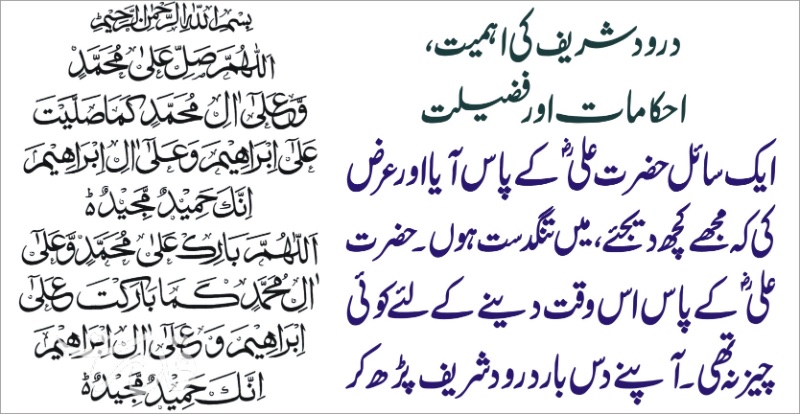 درود شریف کی اہمیت،
احکامات اور فضیلت
ایک سائل حضرت علیؓ کے پاس آیا اور عرض
کی کہ مجھے کچھ دیجئے، میں تنگدست ہوں۔ حضرت
علیؓ کے پاس اس وقت دینے کے لئے کوئی
چیز نہ تھی۔ آپنے دس بار درود شریف پڑھ کر
بِسْمِ اللهِ الرَّحْمٰنِ الرَّحِيْمِ
اَللّٰهُمَّ صَلِّ عَلٰى مُحَمَّدٍ
وَّعَلٰٓى اٰلِ مُحَمَّدٍ كَمَا صَلَّيْتَ
عَلٰٓى اِبْرَاهِيْمَ وَعَلٰٓى اٰلِ اِبْرَاهِيْمَ
اِنَّكَ حَمِيْدٌ مَّجِيْدٌ ط
اَللّٰهُمَّ بَارِكْ عَلٰى مُحَمَّدٍ وَّعَلٰٓى
اٰلِ مُحَمَّدٍ كَمَا بَارَكْتَ عَلٰٓى
اِبْرَاهِيْمَ وَعَلٰٓى اٰلِ اِبْرَاهِيْمَ
اِنَّكَ حَمِيْدٌ مَّجِيْدٌ ط